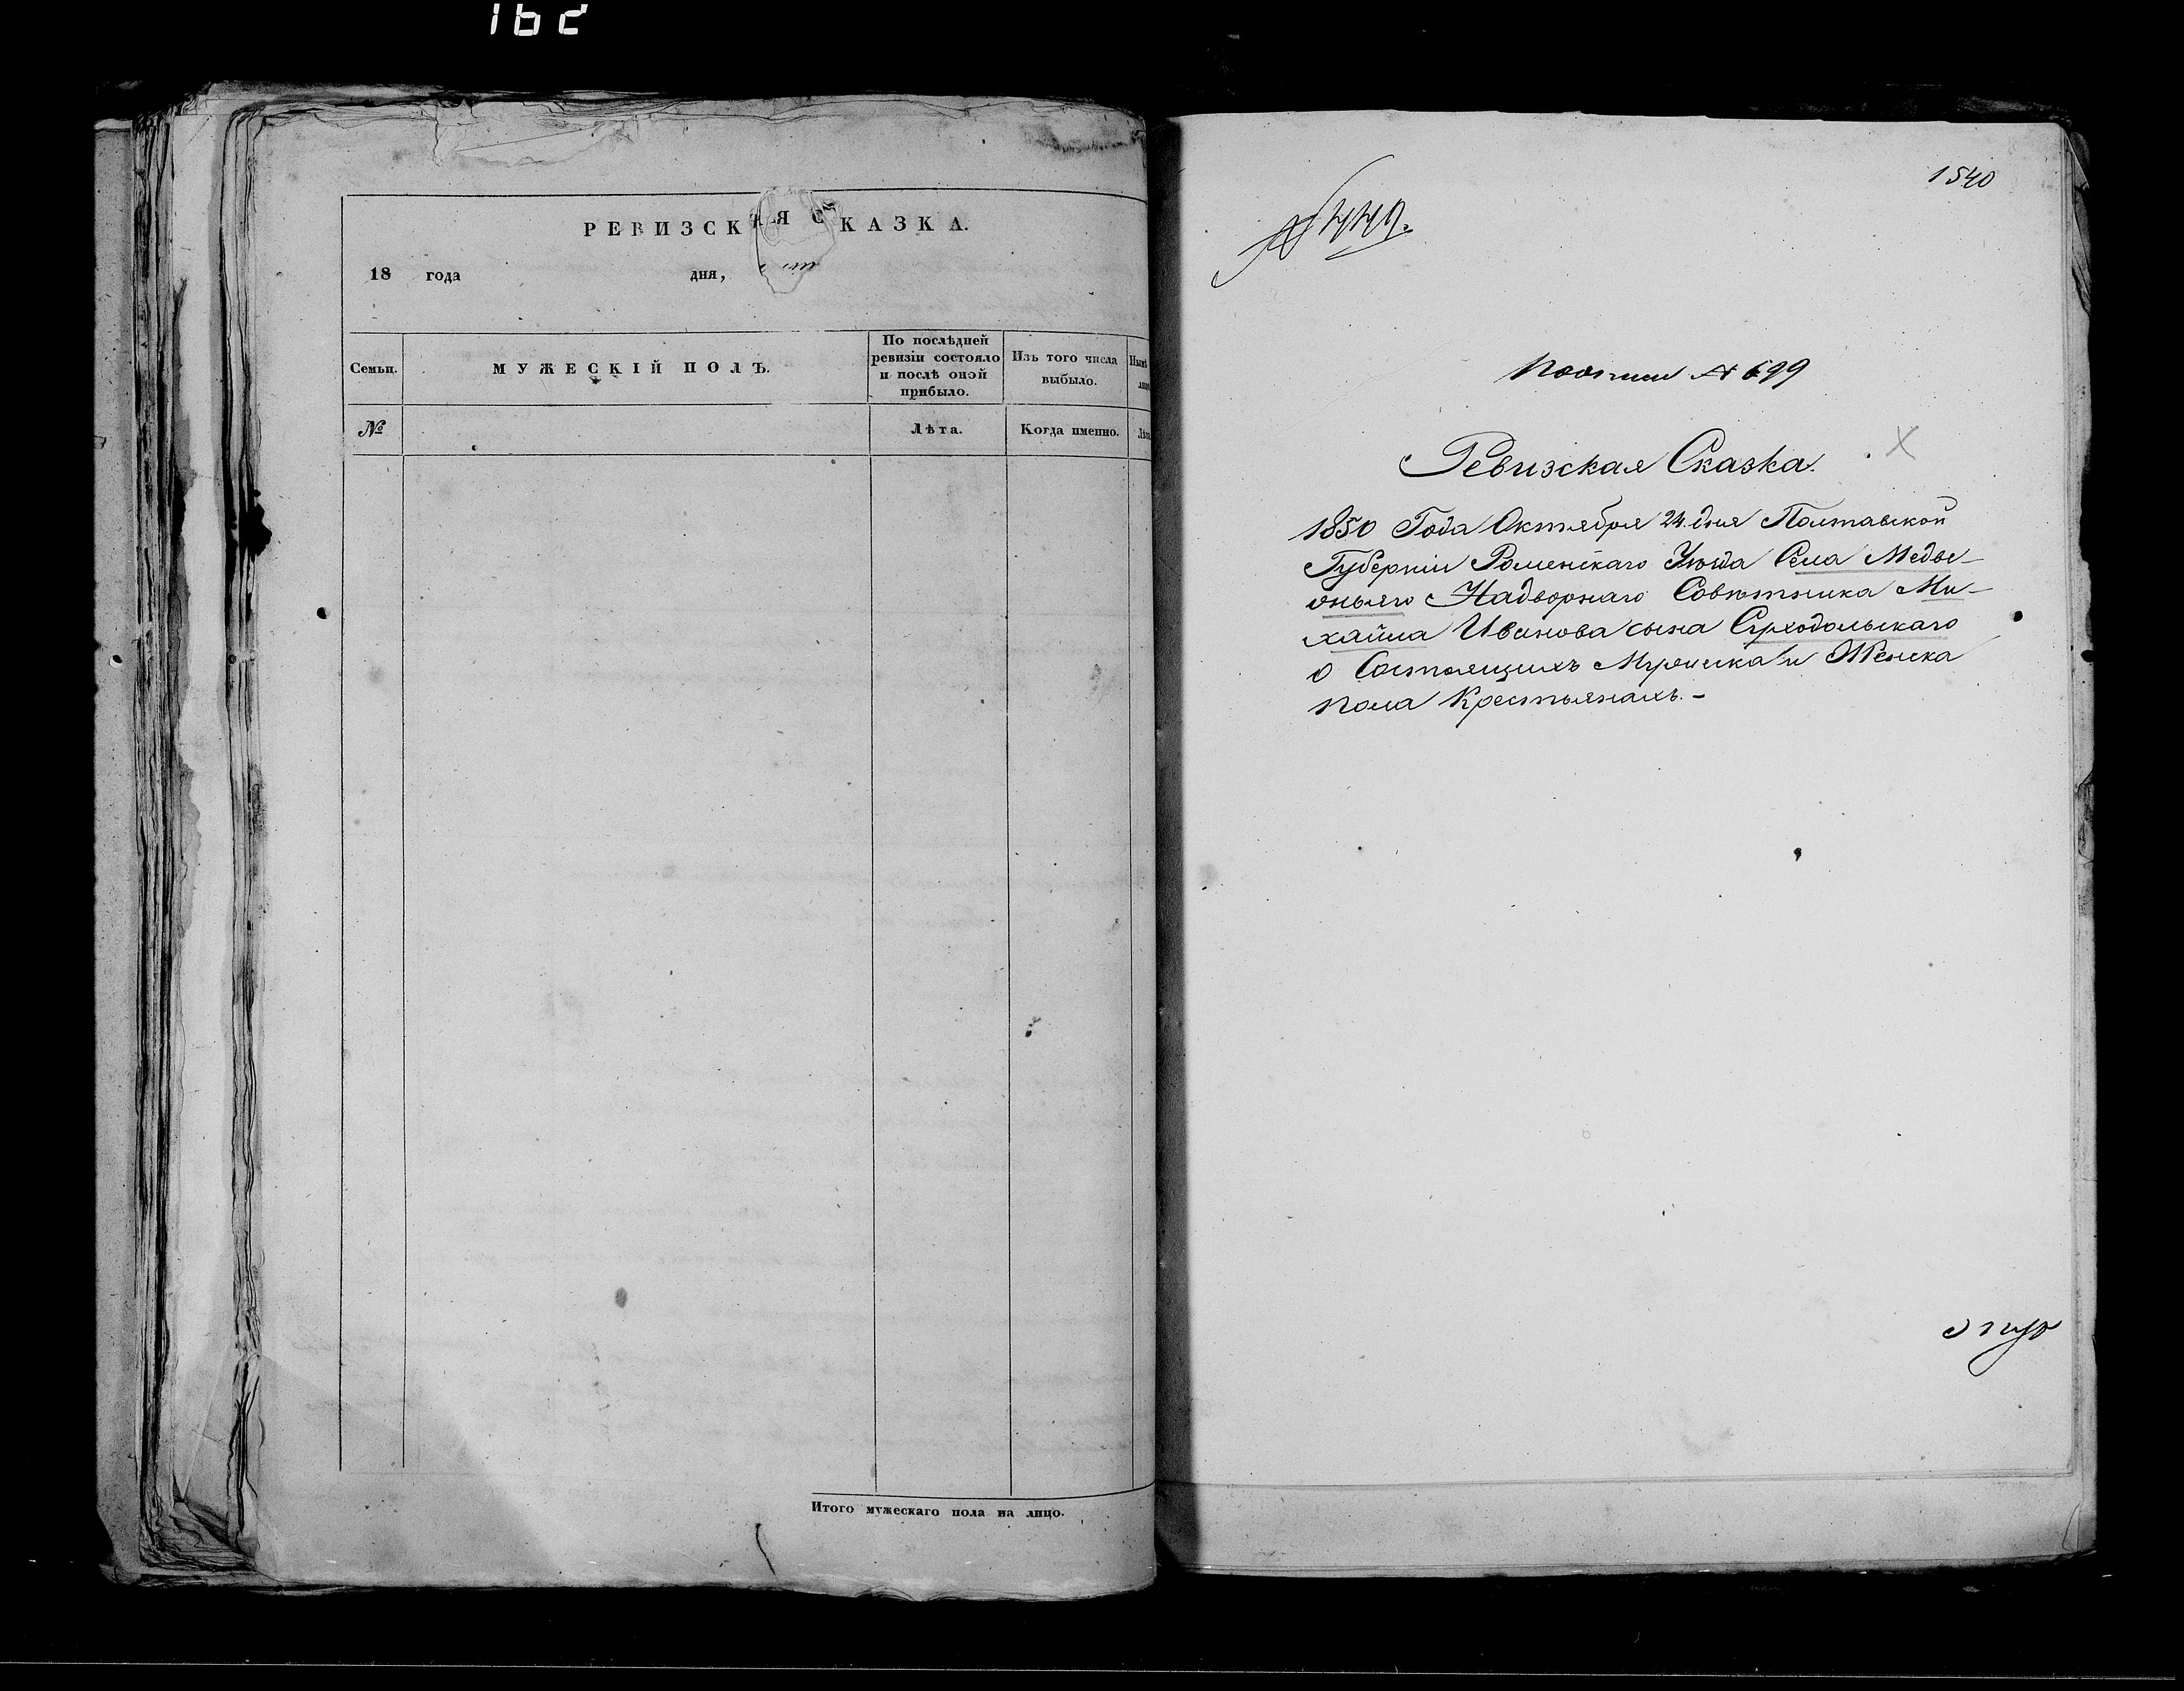 162
РЕВИЗСКАЯ СКАЗКА.
18 года дня,
Семьи.
МУЖЕСКІЙ ПОЛЪ.
По послѣдней ревизіи состояло и послѣ оной прибыло.
Изъ того числа выбыло.
№
Лѣта.
Когда именно.
Итого мужескаго пола на лицо.
1540
По описи № 699
Ревизская Сказка.
1850 Года Октября 24 дня Полтавской
Губерніи Роменскаго Уѣзда Села Медве-
жьяго Надворнаго Совѣтника Ми-
хайла Иванова сына Суходольскаго
о Состоящихъ Мужеска и Женска
пола Крестьянахъ.-